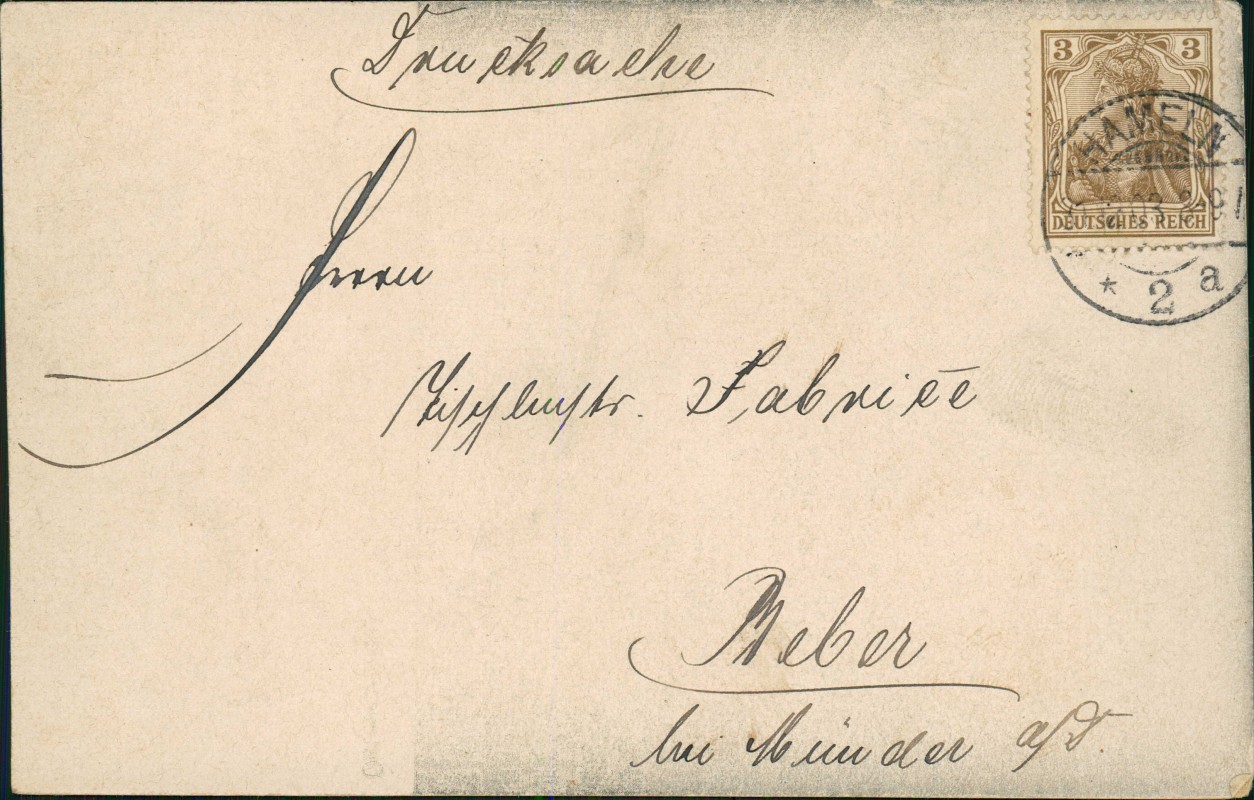 Drucksache
3 3
HAMELN
DEUTSCHES REICH
* 2 a
Herrn
Tischlermstr. Fabrice
Beber
bei Münder a/D.